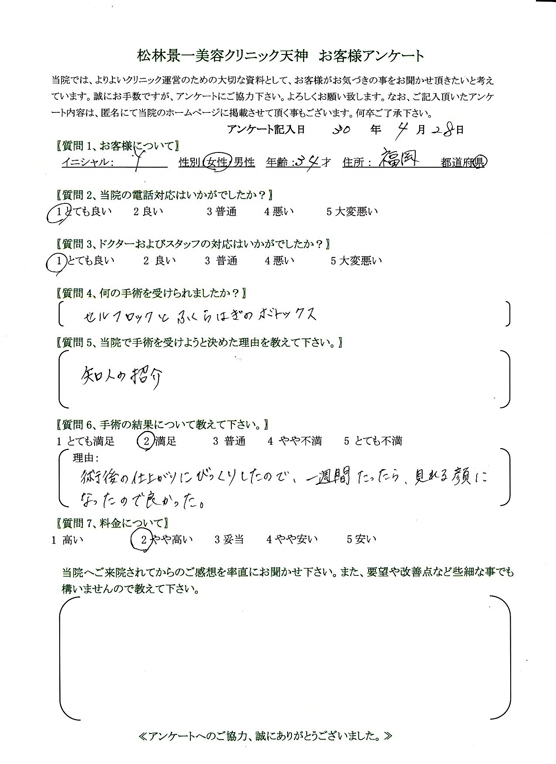 松林景一美容クリニック天神 お客様アンケート
当院では、よりよいクリニック運営のための大切な資料として、お客様がお気づきの事をお聞かせ頂きたいと考え
ています。誠にお手数ですが、アンケートにご協力下さい。よろしくお願い致します。なお、ご記入頂いたアンケ
ート内容は、匿名にて当院のホームページに掲載させて頂く事もございます。何卒ご了承下さい。
アンケート記入日 30 年 4 月 28日
〖質問1、お客様について〗
イニシャル: Y 性別 女性 男性 年齢:34才 住所: 福岡 都道府県
〖質問2、当院の電話対応はいかがでしたか?〗
1 とても良い 2 良い 3 普通 4 悪い 5 大変悪い
〖質問3、ドクターおよびスタッフの対応はいかがでしたか?〗
1 とても良い 2 良い 3 普通 4 悪い 5 大変悪い
〖質問4、何の手術を受けられましたか?〗
セルフロックとふくらはぎのボトックス
〖質問5、当院で手術を受けようと決めた理由を教えて下さい。〗
知人の紹介
〖質問6、手術の結果について教えて下さい。〗
1 とても満足 2 満足 3 普通 4 やや不満 5 とても不満
理由:
術後の仕上がりにびっくりしたので、一週間たったら、見れる顔に
なったので良かった。
〖質問7、料金について〗
1 高い 2 やや高い 3 妥当 4 やや安い 5 安い
当院へご来院されてからのご感想を率直にお聞かせ下さい。また、要望や改善点など些細な事でも
構いませんので教えて下さい。
≪アンケートへのご協力、誠にありがとうございました。≫